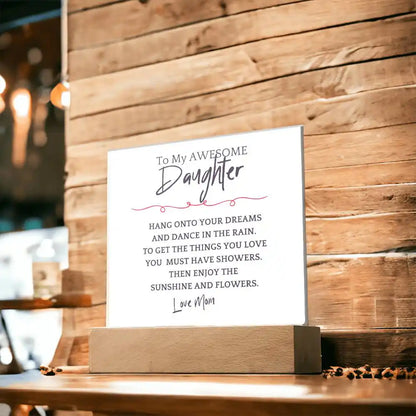 To My AWESOME
Daughter
HANG ONTO YOUR DREAMS
AND DANCE IN THE RAIN.
TO GET THE THINGS YOU LOVE
YOU MUST HAVE SHOWERS.
THEN ENJOY THE
SUNSHINE AND FLOWERS.
Love Mom